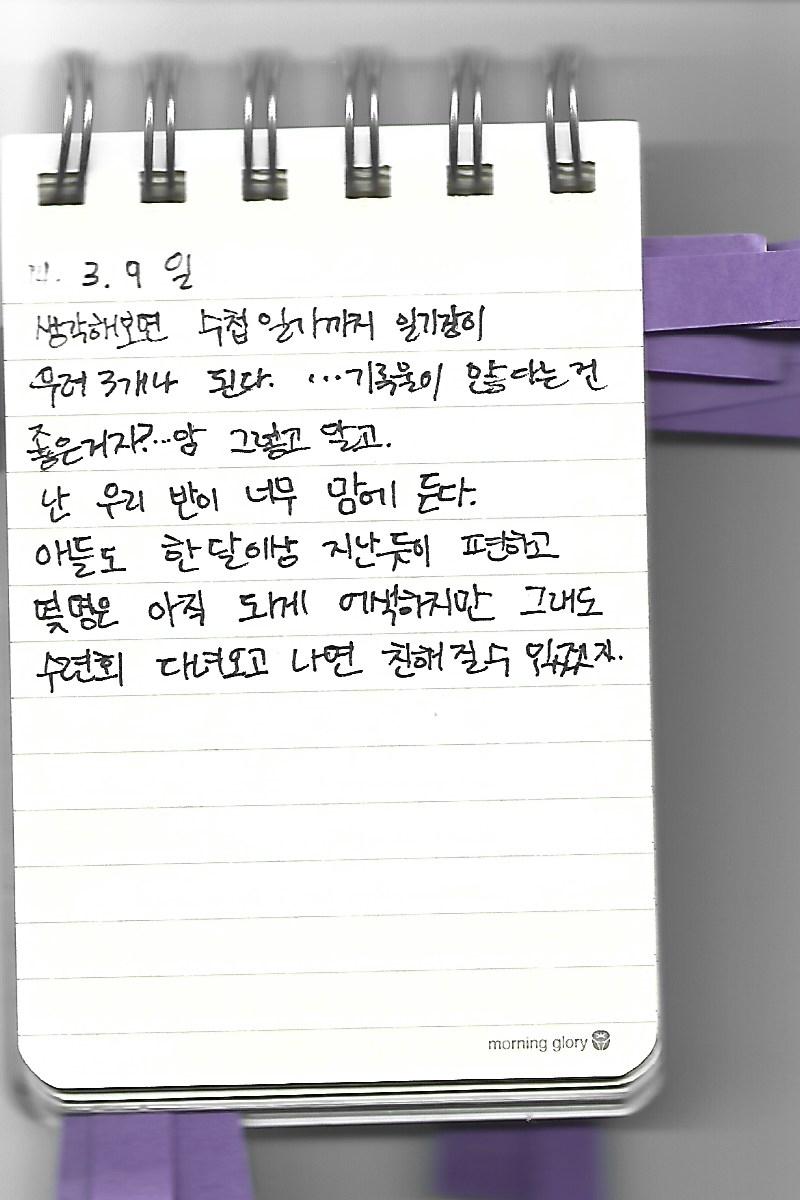 3. 9 일
생각해보면 수첩 일기까지 일기장이
무려 3개나 된다. …기록물이 많다는 건
좋은거지?…암 그렇고 말고.
난 우리 반이 너무 맘에 든다.
애들도 한달이상 지난듯이 편하고
몇명은 아직 되게 어색하지만 그래도
수련회 다녀오고 나면 친해질수 있겠지.
morning glory